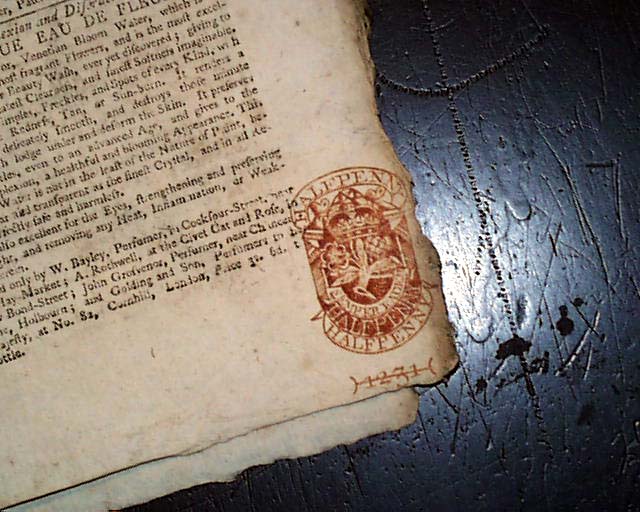 lexion and Disor
UE EAU DE FLEU
or, Venetian Bloom Water, which is
most fragrant Flowers, and is the most excel-
Beauty Wash, ever yet discovered; giving to
Clearness, and such Softness imaginable,
Pimples, Freckles, and Spots of every Kind, wh
Redness, Tan, or Sun-Burn. It renders a
delicately smooth, and destroys those minute
h lodge under and deform the Skin. It preserves
even to an advanced Age, and gives to the
plexion, a healthful and blooming Appearance. This
Water is not in the least of the Nature of Paint, be-
and transparent as the finest Crystal, and in all Re-
rfectly safe and harmless.
also excellent for the Eyes, strengthening and preserving
ght, and removing any Heat, Inflammation, or Weak-
erein.
d only by W. Bayley, Perfumer, in Cockspur-Street, near
ay-Market; A. Rothwell, at the Civet Cat and Rose,
Bond-Street; John Grosvenor, Perfumer, near
Holbourn; and Golding and Son, Perfumers to
ajesty, at No. 82, Cornhill, London,
ottle.
HALFPENNY
HALFPENNY
HALFPENNY
(1231)